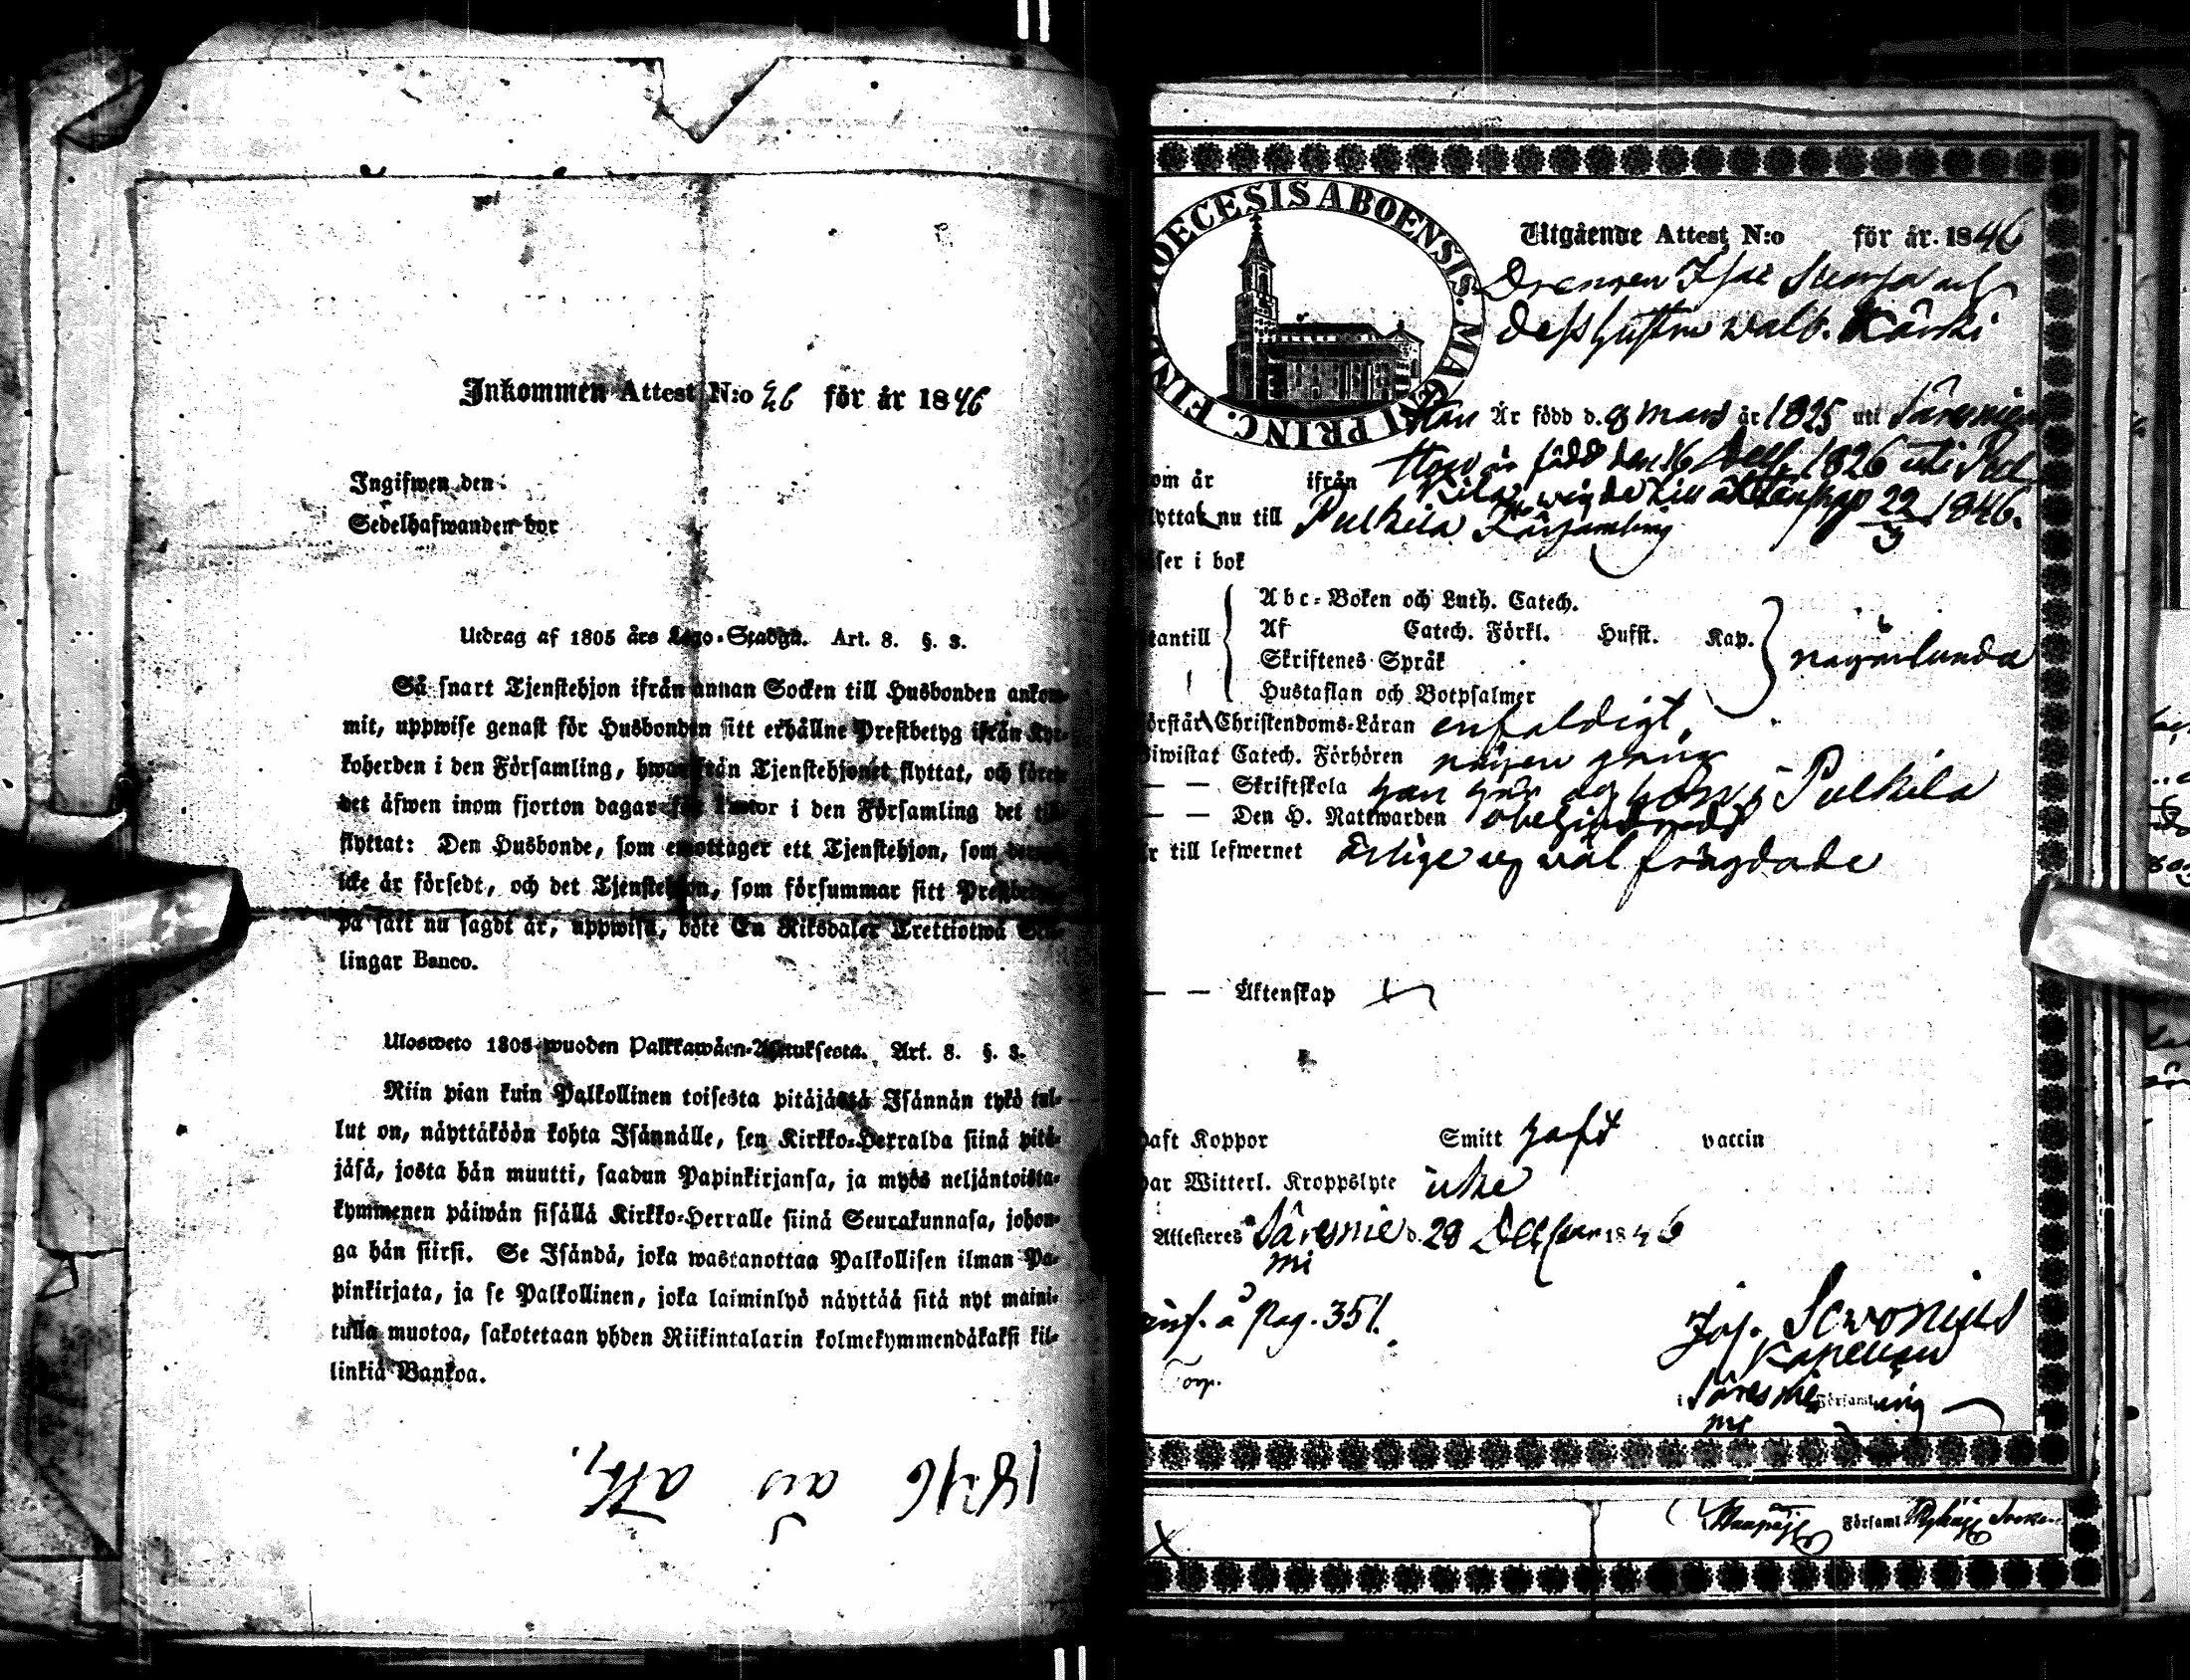 Inkommen Attest N:o 26 för år 1846
Ingifwen den
Sedelhafwanden bor
Utdrag af 1805 års Lego-Stadga. Art. 8. §. 3.
Så snart Tjenstehjon ifrån annan Socken till Husbonden ankom-
mit, uppwise genast för Husbonden sitt erhållne Prestbetyg ifrån Kyr-
koherden i den Församling, hwarifrån Tjenstehjonet flyttat, och förete
det äfwen inom fjorton dagar för Pastor i den Församling det till-
flyttat: Den Husbonde, som emottager ett Tjenstehjon, som
icke är försedt, och det Tjenstehjon, som försummar sitt Prestbetyg
på sätt nu sagdt är, uppwisa, böte En Riksdaler Trettiotwå Skil-
lingar Banco.
Ulosweto 1805 wuoden Palkkawäen-Asetuksesta. Art. 8. §. 3.
Niin pian kuin Palkollinen toisesta pitäjästä Isännän tykö tul-
lut on, näyttäköön kohta Isännälle, sen Kirkko-Herralda siinä pitä-
jäsä, josta hän muutti, saadun Papinkirjansa, ja myös neljäntoista-
kymmenen päiwän sisällä Kirkko-Herralle siinä Seurakunnasa, johon-
ga hän siirsi. Se Isändä, joka wastanottaa Palkollisen ilman Pa-
pinkirjata, ja se Palkollinen, joka laiminlyö näyttää sitä nyt maini-
tulla muotoa, sakotetaan yhden Riikintalarin kolmekymmendäkaksi kil-
linkiä Bankoa.
1846 års att,
DIOECESIS ABOENSIS. MAGNI PRINC. FINL.
Utgående Attest N:o för år 1846
Drengen Isac och
dess hustru Walb. Kärki
Han Är född d. 8 mars år 1825 uti Säresniemi
Hon är född den 16 Dec. 1826 uti Pul
om år ifrån kila, wigde till äktenskap 22/3 1846.
lyttat nu till Pulkila Församling
ser i bok
Abc-Boken och Luth. Catech.
tantill Af Catech. Förkl. Husst. Kap. någorlunda
Skriftenes Språk
Hustaflan och Botpsalmer
örstår Christendoms-Läran enfaldigt
iwistat Catech. Förhören någon gång
— — Skriftskola han här och hon i Pulkila
— — Den H. Nattwarden obehindrade
r till lefwernet ärlige og wäl frägdade
— — Äktenskap
haft Koppor Smitt haft vaccin
har Witterl. Kroppslyte icke
Attesteres Säresnie d. 28 December 1846
mi
inf. å Pag. 351.
Jos.
Kapellan
i Säresnie Församling
mi
Församl